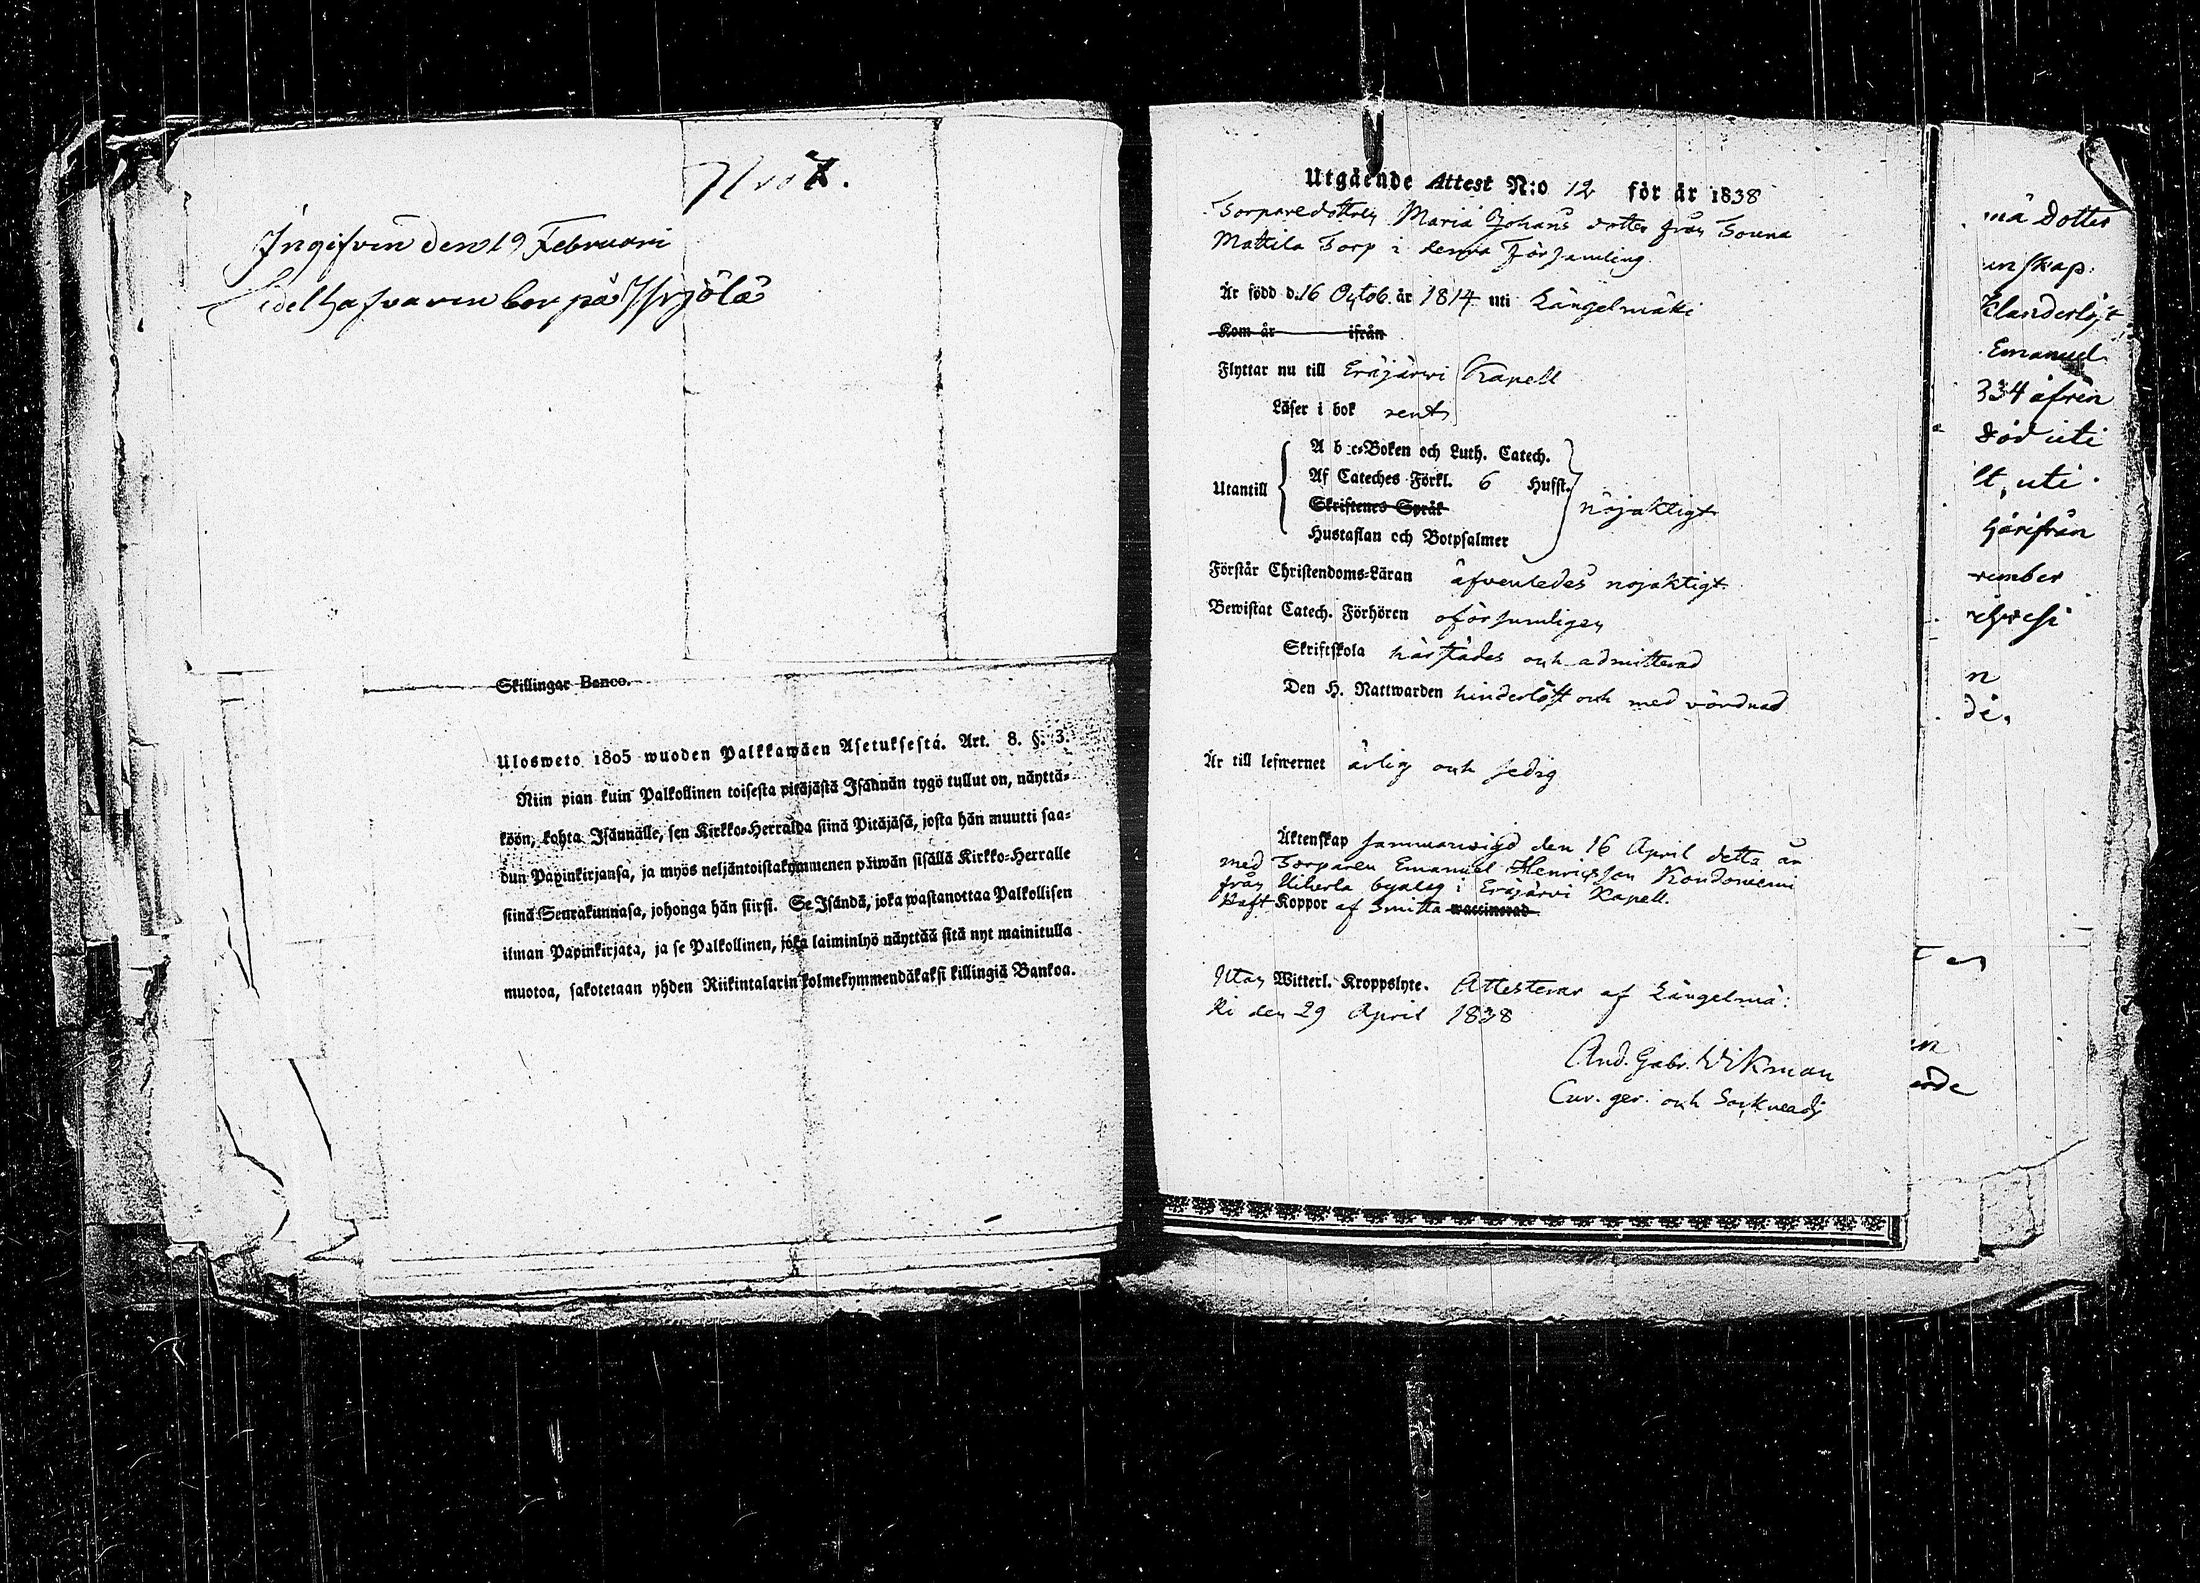 No 7.
Ingifven den 19 Februari
bor på Yrjölä
Skillingar Banco.
Ulosweto 1805 wuoden Palkkawäen Asetuksesta. Art. 8. §. 3.
Niin pian kuin Palkollinen toisesta pitäjästä Isännän tygö tullut on, näyttä-
köön, kohta Isännälle, sen Kirkko-Herralda siinä Pitäjäsä, josta hän muutti saa-
dun Papinkirjansa, ja myös neljäntoistakymmenen päiwän sisällä Kirkko-Herralle
siinä Seurakunnasa, johonga hän siirsi. Se Isändä, joka wastanottaa Palkollisen
ilman Papinkirjata, ja se Palkollinen, joka laiminlyö näyttää sitä nyt mainitulla
muotoa, sakotetaan yhden Riikintalarin kolmekymmendäkaksi killingiä Bankoa.
Utgående Attest N:o 12 för år 1838
Torparedottren Maria Johans dotter från Touna
Mattila Torp i denna Församling
Är född d. 16 Octob. år 1814 uti Längelmäki
Kom år ifrån
Flyttar nu till Eräjärwi Kapell
Läser i bok rent
A b c-Boken och Luth. Catech.
Utantill Af Cateches Förkl. 6 Hufst.
Skriftenes Språk nöjaktigt
Hustaflan och Botpsalmer
Förstår Christendoms-Läran äfvenledes nöjaktigt
Bewistat Catech. Förhören oförsumligen
Skriftskola härstädes och admitterad
Den H. Nattwarden hinderlöst och med vördnad
Är till lefwernet ärlig och sedig
Äktenskap sammanvigd den 16 April detta år
med Torparen Emanuel Henricsson Kondoniemi
från Uiherla bylag i Eräjärvi Kapell.
Haft Koppor af Smitta waccinerad
Utan Witterl. Kroppslyte. Attesterar af Längelmä:
ki den 29 April 1838
And. Gabr. Wikman
Cur. ger. och
mä Dotter
enskap.
Klanderlöst
Emanuel
334 åfrån
död uti
lt, uti
härifrån
rember
n
de.
en
erde